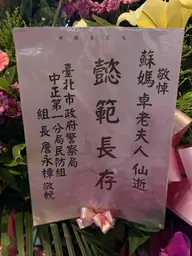 敬悼
蘇媽卓老夫人仙逝
懿範長存
臺北市政府警察局
中正第一分局民防組
組長詹永樟敬輓